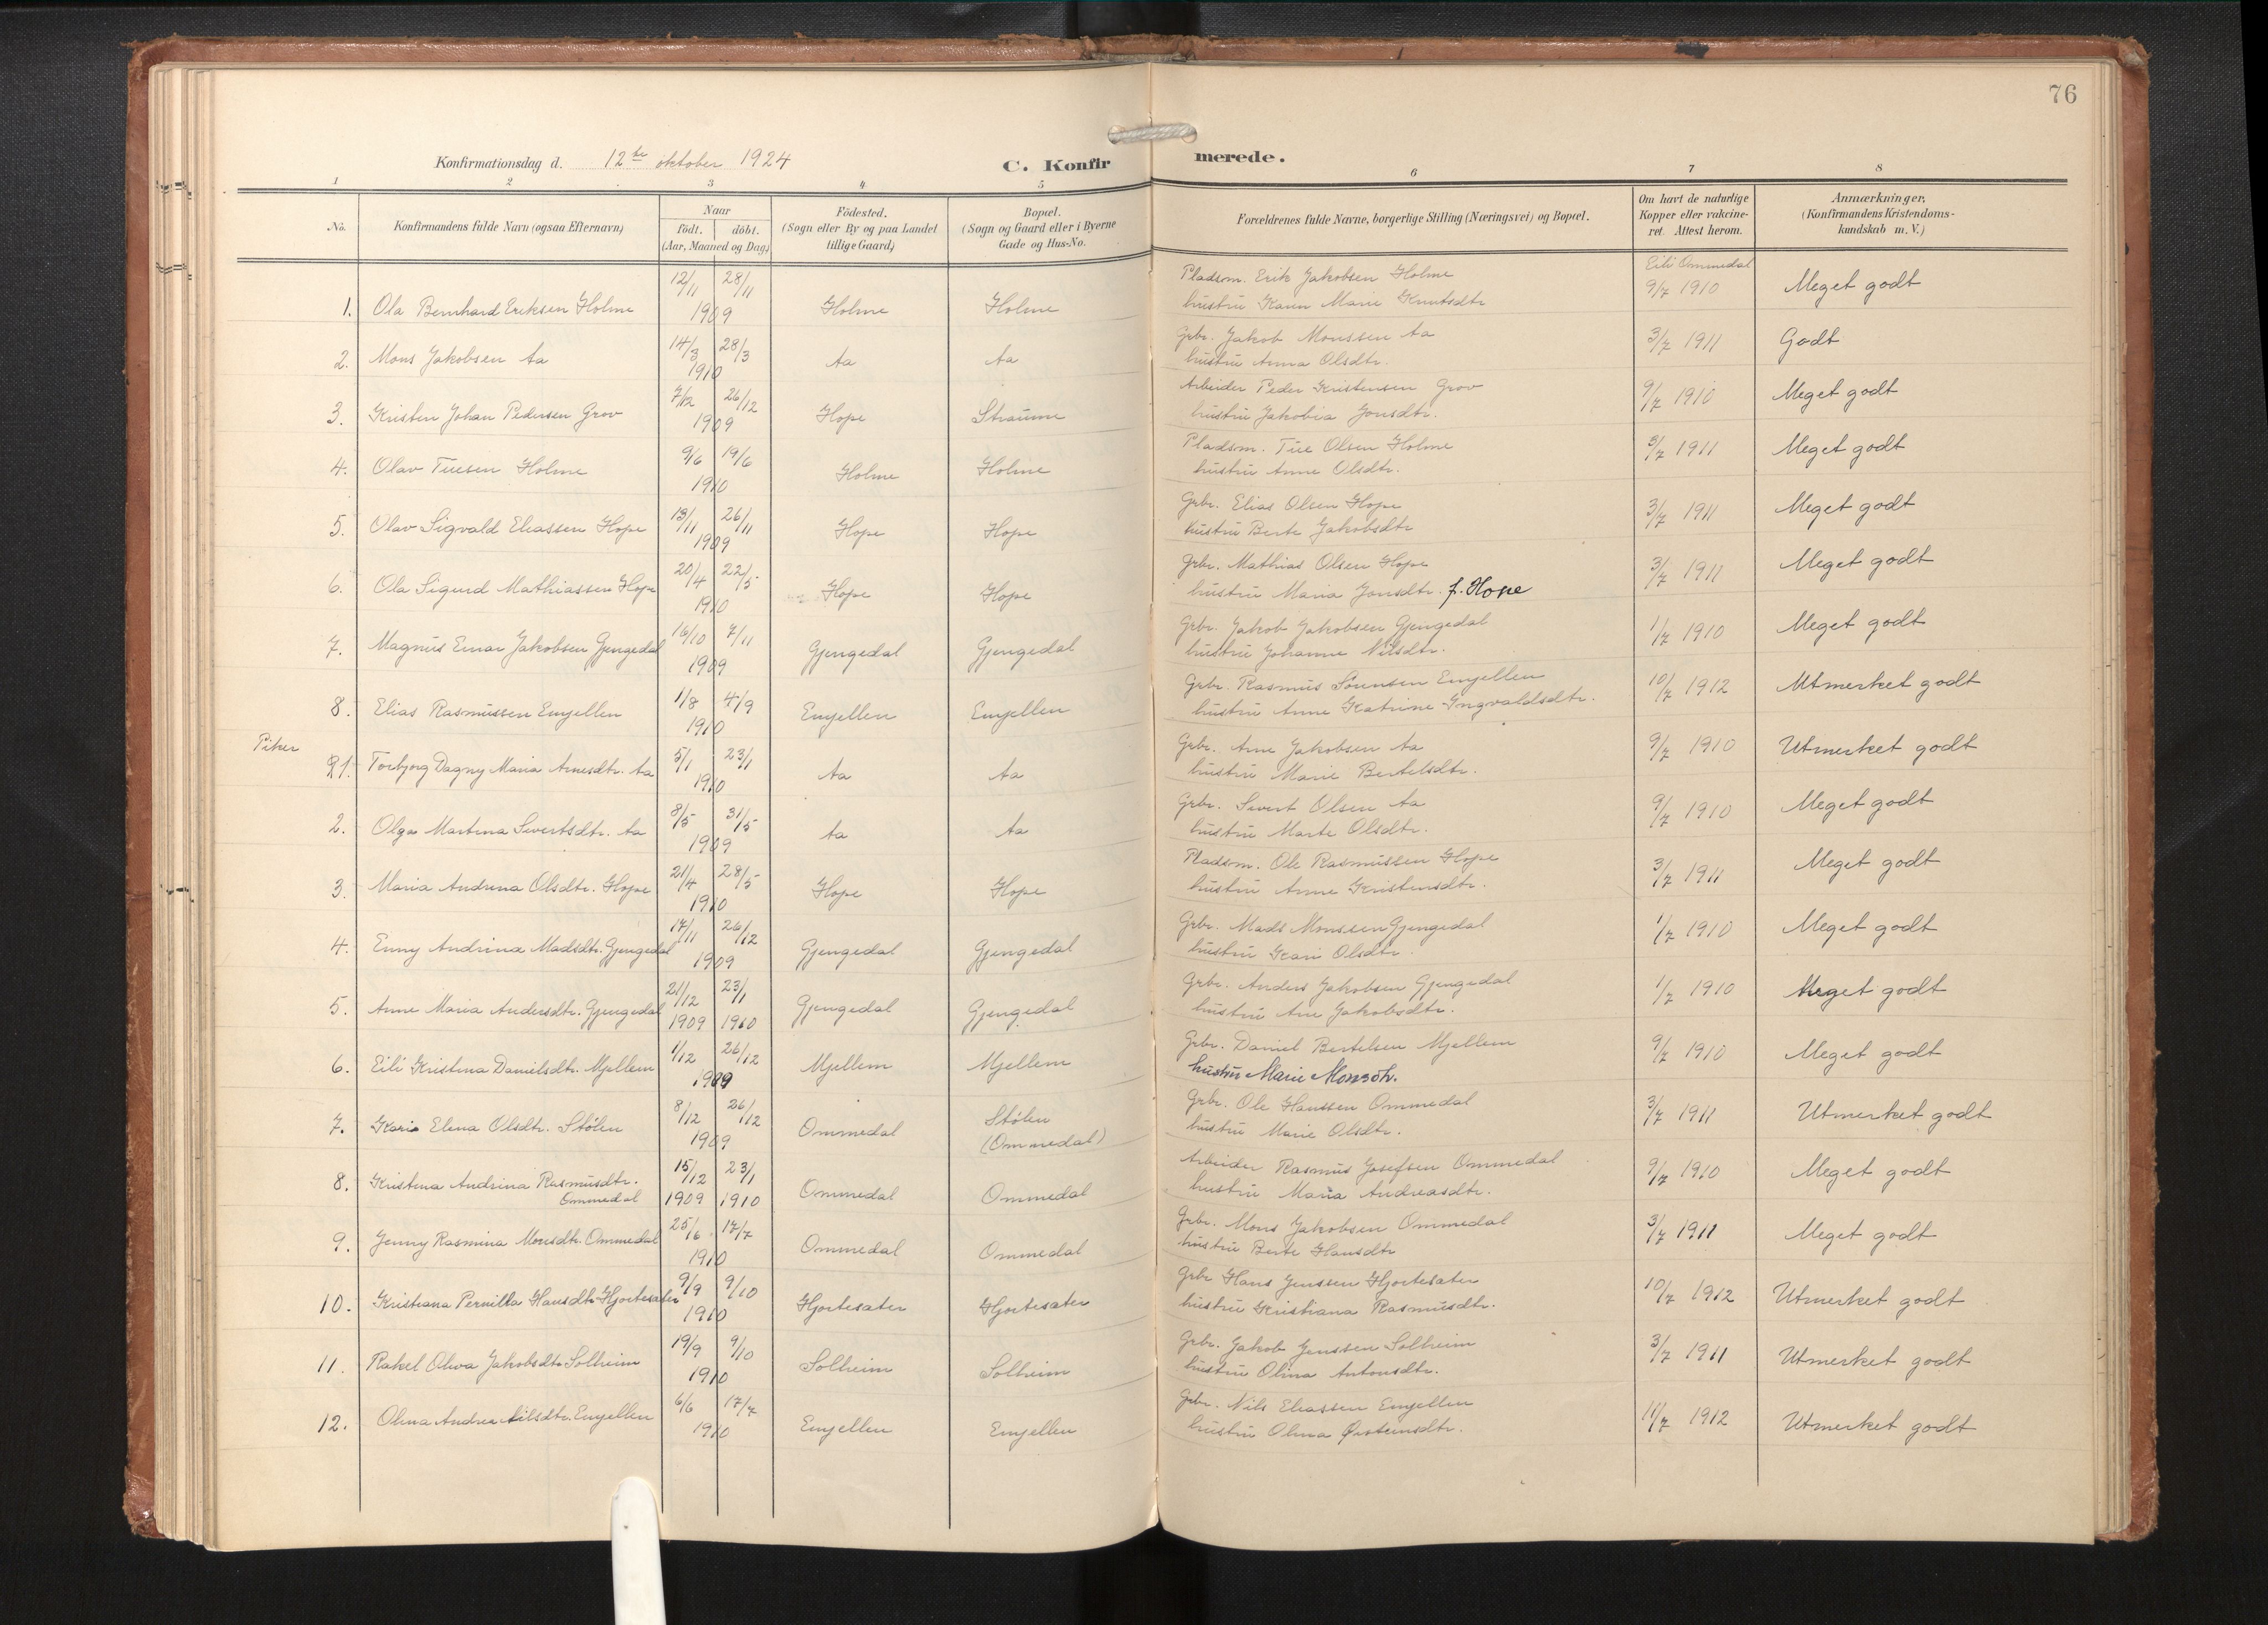 76
Konfirmationsdag d. 12te oktober 1924 C. Konfirmerede.
1 2 3 4 5 6 7 8
No. Konfirmandens fulde Navn (ogsaa Efternavn) Naar födt. döbt. (Aar, Maaned og Dag) Födested. (Sogn eller By og paa Landet tillige Gaard) Bopæl. (Sogn og Gaard eller i Byerne Gade og Hus-No. Forældrenes fulde Navne, borgerlige Stilling (Næringsvei) og Bopæl. Om havt de naturlige Kopper eller vakcineret. Attest herom. Anmærkninger. (Konfirmandens Kristendomskundskab m. V.)
1. Ola Bernhard Eriksen Holme 12/11 28/11 1909 Holme Holme Pladsm. Erik Jakobsen Holme Eili Ommedal 9/7 1910 Meget godt
hustru Karen Marie Knutsdtr
2. Mons Jakobsen Aa 14/3 28/3 1910 Aa Aa Grbr. Jakob Monssen Aa 3/7 1911 Godt
hustru Anna Olsdtr.
3. Kristen Johan Pedersen Grov 7/12 26/12 1909 Hope Straume Arbeider Peder Kristensen Grov 9/7 1910 Meget godt
hustru Jakobia Jonsdtr.
4. Olav Tuesen Holme 9/6 19/6 1910 Holme Holme Pladsm. Tue Olsen Holme 3/7 1911 Meget godt
hustru Anne Olsdtr.
5. Olav Sigvald Eliassen Hope 13/11 26/11 1909 Hope Hope Grbr. Elias Olsen Hope 3/7 1911 Meget godt
hustru Berte Jakobsdtr
6. Ola Sigurd Mathiassen Hope 20/4 22/5 1910 Hope Hope Grbr. Mathias Olsen Hope 3/7 1911 Meget godt
hustru Maria Jonsdtr. f. Hope
7. Magnus Einar Jakobsen Gjengedal 16/10 7/11 1909 Gjengedal Gjengedal Grbr. Jakob Jakobsen Gjengedal 1/7 1910 Meget godt
hustru Johanne Nilsdtr.
8. Elias Rasmussen Emjellen 1/8 4/9 1910 Emjellen Emjellen Grbr. Rasmus Sørensen Emjellen 10/7 1912 Utmerket godt
hustru Anne Katrine Ingvaldsdtr.
Piker
1. Torbjorg Dagny Maria Arnesdtr. Aa 5/1 23/1 1910 Aa Aa Grbr. Arne Jakobsen Aa 9/7 1910 Utmerket godt
hustru Marie Bertelsdtr.
2. Olga Martina Sivertsdtr. Aa 8/5 31/5 1909 Aa Aa Grbr. Sivert Olsen Aa 9/7 1910 Meget godt
hustru Marte Olsdtr.
3. Maria Andrina Olsdtr. Hope 21/4 28/5 1910 Hope Hope Pladsm. Ole Rasmussen Hope 3/7 1911 Meget godt
hustru Anne Kristensdtr.
4. Enny Andrina Madsdtr. Gjengedal 17/11 26/12 1909 Gjengedal Gjengedal Grbr. Mads Monssen Gjengedal 1/7 1910 Meget godt
hustru Kari Olsdtr.
5. Anne Maria Andersdtr. Gjengedal 21/12 1909 23/1 1910 Gjengedal Gjengedal Grbr. Anders Jakobsen Gjengedal 1/7 1910 Meget godt
hustru Ane Jakobsdtr.
6. Eili Kristina Danielsdtr. Mjellem 1/12 26/12 1909 Mjellem Mjellem Grbr. Daniel Bertelsen Mjellem 9/7 1910 Meget godt
hustru Marie Monsdtr.
7. Kari Elena Olsdtr. Stølen 8/12 26/12 1909 Ommedal Stølen (Ommedal) Grbr. Ole Hanssen Ommedal 3/7 1911 Utmerket godt
hustru Marie Olsdtr.
8. Kristina Andrina Rasmusdtr. Ommedal 15/12 1909 23/1 1910 Ommedal Ommedal Arbeider Rasmus Josefsen Ommedal 9/7 1910 Meget godt
hustru Maria Andreasdtr.
9. Jenny Rasmina Monsdtr. Ommedal 25/6 17/7 1910 Ommedal Ommedal Grbr. Mons Jakobsen Ommedal 3/7 1911 Meget godt
hustru Berte Hansdtr
10. Kristiana Pernilla Hansdtr. Hjortesæter 9/9 9/10 1910 Hjortesæter Hjortesæter Grbr Hans Jenssen Hjortesæter 10/7 1912 Utmerket godt
hustru Kristiana Rasmusdtr.
11. Rakel Oliva Jakobsdtr Solheim 19/9 9/10 1910 Solheim Solheim Grbr. Jakob Jenssen Solheim 3/7 1911 Utmerket godt
hustru Olina Antonsdtr.
12. Olina Andrea Nilsdtr. Emjellen 6/6 17/7 1910 Emjellen Emjellen Grbr. Nils Eliassen Emjellen 11/7 1912 Utmerket godt
hustru Olina Øisteinsdtr.